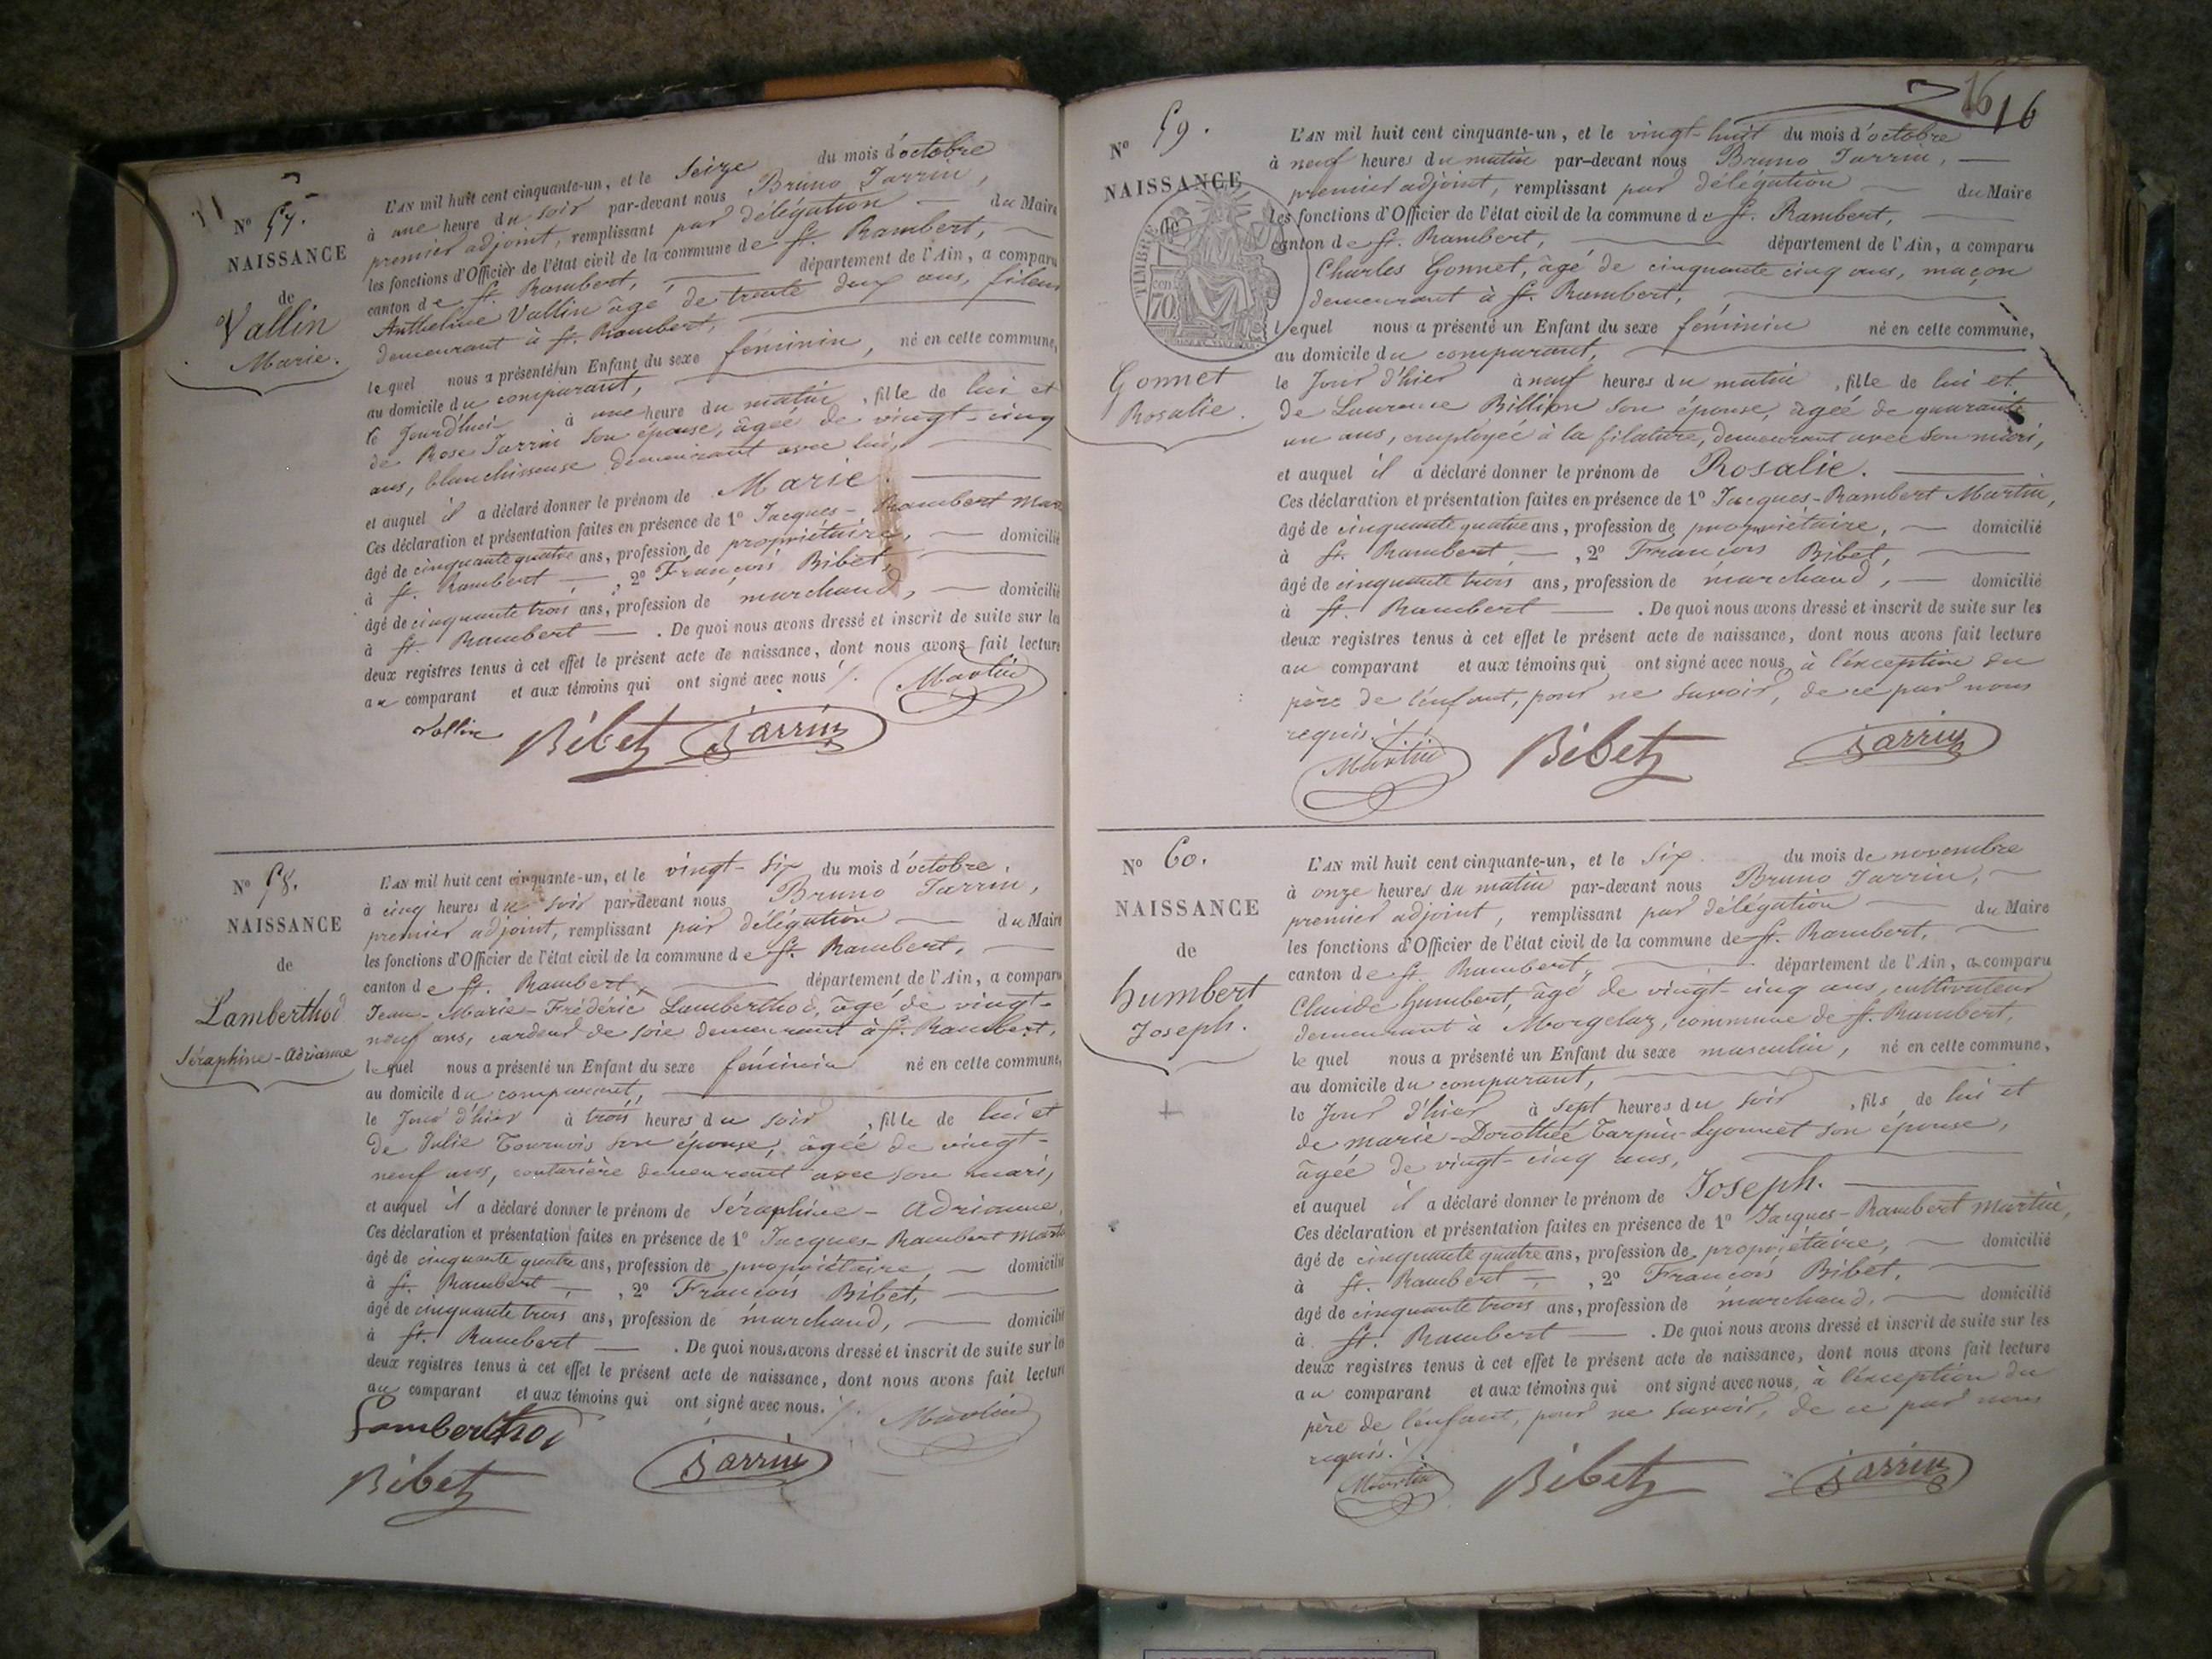 N° 57.
NAISSANCE
de
Vallin
Marie.
L'AN mil huit cent cinquante-un, et le Seize du mois d'octobre
à une heure du soir par-devant nous Bruno Jarrin,
premier adjoint, remplissant par délégation du Maire
les fonctions d'Officier de l'état civil de la commune de St. Rambert,
canton de St. Rambert, département de l'Ain, a comparu
Anthelme Vallin âgé de trente deux ans, fileur
demeurant à St. Rambert,
lequel nous a présenté un Enfant du sexe féminin, né en cette commune,
au domicile du comparant,
le Jourd'hui à une heure du matin, fille de lui et
de Rose Jarrin son épouse, âgée de vingt-cinq
ans, blanchisseuse demeurant avec lui,
et auquel il a déclaré donner le prénom de Marie.
Ces déclaration et présentation faites en présence de 1° Jacques-Rambert Mar
âgé de cinquante quatre ans, profession de propriétaire, domicilié
à St. Rambert, 2° François Bibet,
âgé de cinquante trois ans, profession de marchand, domicilié
à St. Rambert. De quoi nous avons dressé et inscrit de suite sur les
deux registres tenus à cet effet le présent acte de naissance, dont nous avons fait lecture
au comparant et aux témoins qui ont signé avec nous
Martin
Vallin Bibet Jarrin
N° 58.
NAISSANCE
de
Lamberthod
Séraphine-Adrianne
L'AN mil huit cent cinquante-un, et le vingt-six du mois d'octobre,
à cinq heures du soir par-devant nous Bruno Jarrin,
premier adjoint, remplissant par délégation du Maire
les fonctions d'Officier de l'état civil de la commune de St. Rambert,
canton de St. Rambert, département de l'Ain, a comparu
Jean-Marie-Frédéric Lamberthod, âgé de vingt-
neuf ans, cardeur de soie demeurant à St. Rambert,
lequel nous a présenté un Enfant du sexe féminin né en cette commune,
au domicile du comparant,
le Jour d'hier à trois heures du soir, fille de lui et
de Julie Tournois son épouse, âgée de vingt-
neuf ans, couturière demeurant avec son mari,
et auquel il a déclaré donner le prénom de Séraphine-Adrianne,
Ces déclaration et présentation faites en présence de 1° Jacques-Rambert Marti
âgé de cinquante quatre ans, profession de propriétaire, domicilié
à St. Rambert, 2° François Bibet,
âgé de cinquante trois ans, profession de marchand, domicilié
à St. Rambert. De quoi nous avons dressé et inscrit de suite sur les
deux registres tenus à cet effet le présent acte de naissance, dont nous avons fait lecture
au comparant et aux témoins qui ont signé avec nous.
Martin
Lamberthod
Bibet Jarrin
16 16
N° 59.
NAISSANCE
de
TIMBRE
70
Gonnet
Rosalie.
L'AN mil huit cent cinquante-un, et le vingt-huit du mois d'octobre
à neuf heures du matin par-devant nous Bruno Jarrin,
premier adjoint, remplissant par délégation du Maire
les fonctions d'Officier de l'état civil de la commune de St. Rambert,
canton de St. Rambert, département de l'Ain, a comparu
Charles Gonnet, âgé de cinquante cinq ans, maçon
demeurant à St. Rambert,
lequel nous a présenté un Enfant du sexe féminin né en cette commune,
au domicile du comparant,
le Jour d'hier à neuf heures du matin, fille de lui et
de Laurence Billion son épouse, âgée de quarante
un ans, employée à la filature, demeurant avec son mari,
et auquel il a déclaré donner le prénom de Rosalie.
Ces déclaration et présentation faites en présence de 1° Jacques-Rambert Martin,
âgé de cinquante quatre ans, profession de propriétaire, domicilié
à St. Rambert, 2° François Bibet,
âgé de cinquante trois ans, profession de marchand, domicilié
à St. Rambert. De quoi nous avons dressé et inscrit de suite sur les
deux registres tenus à cet effet le présent acte de naissance, dont nous avons fait lecture
au comparant et aux témoins qui ont signé avec nous à l'exception du
père de l'enfant, pour ne savoir, de ce par nous
requis.
Martin Bibet Jarrin
N° 60.
NAISSANCE
de
Humbert
Joseph.
L'AN mil huit cent cinquante-un, et le Six du mois de novembre
à onze heures du matin par-devant nous Bruno Jarrin,
premier adjoint, remplissant par délégation du Maire
les fonctions d'Officier de l'état civil de la commune de St. Rambert,
canton de St. Rambert, département de l'Ain, a comparu
Claude Humbert, âgé de vingt-cinq ans, cultivateur
demeurant à Morgelaz, commune de St. Rambert,
lequel nous a présenté un Enfant du sexe masculin, né en cette commune,
au domicile du comparant,
le Jour d'hier à sept heures du soir, fils de lui et
de Marie-Dorothée Tarpin-Lyonnet son épouse,
âgée de vingt-cinq ans,
et auquel il a déclaré donner le prénom de Joseph.
Ces déclaration et présentation faites en présence de 1° Jacques-Rambert Martin,
âgé de cinquante quatre ans, profession de propriétaire, domicilié
à St. Rambert, 2° François Bibet,
âgé de cinquante trois ans, profession de marchand, domicilié
à St. Rambert. De quoi nous avons dressé et inscrit de suite sur les
deux registres tenus à cet effet le présent acte de naissance, dont nous avons fait lecture
au comparant et aux témoins qui ont signé avec nous, à l'exception du
père de l'enfant, pour ne savoir, de ce par nous
requis.
Martin Bibet Jarrin